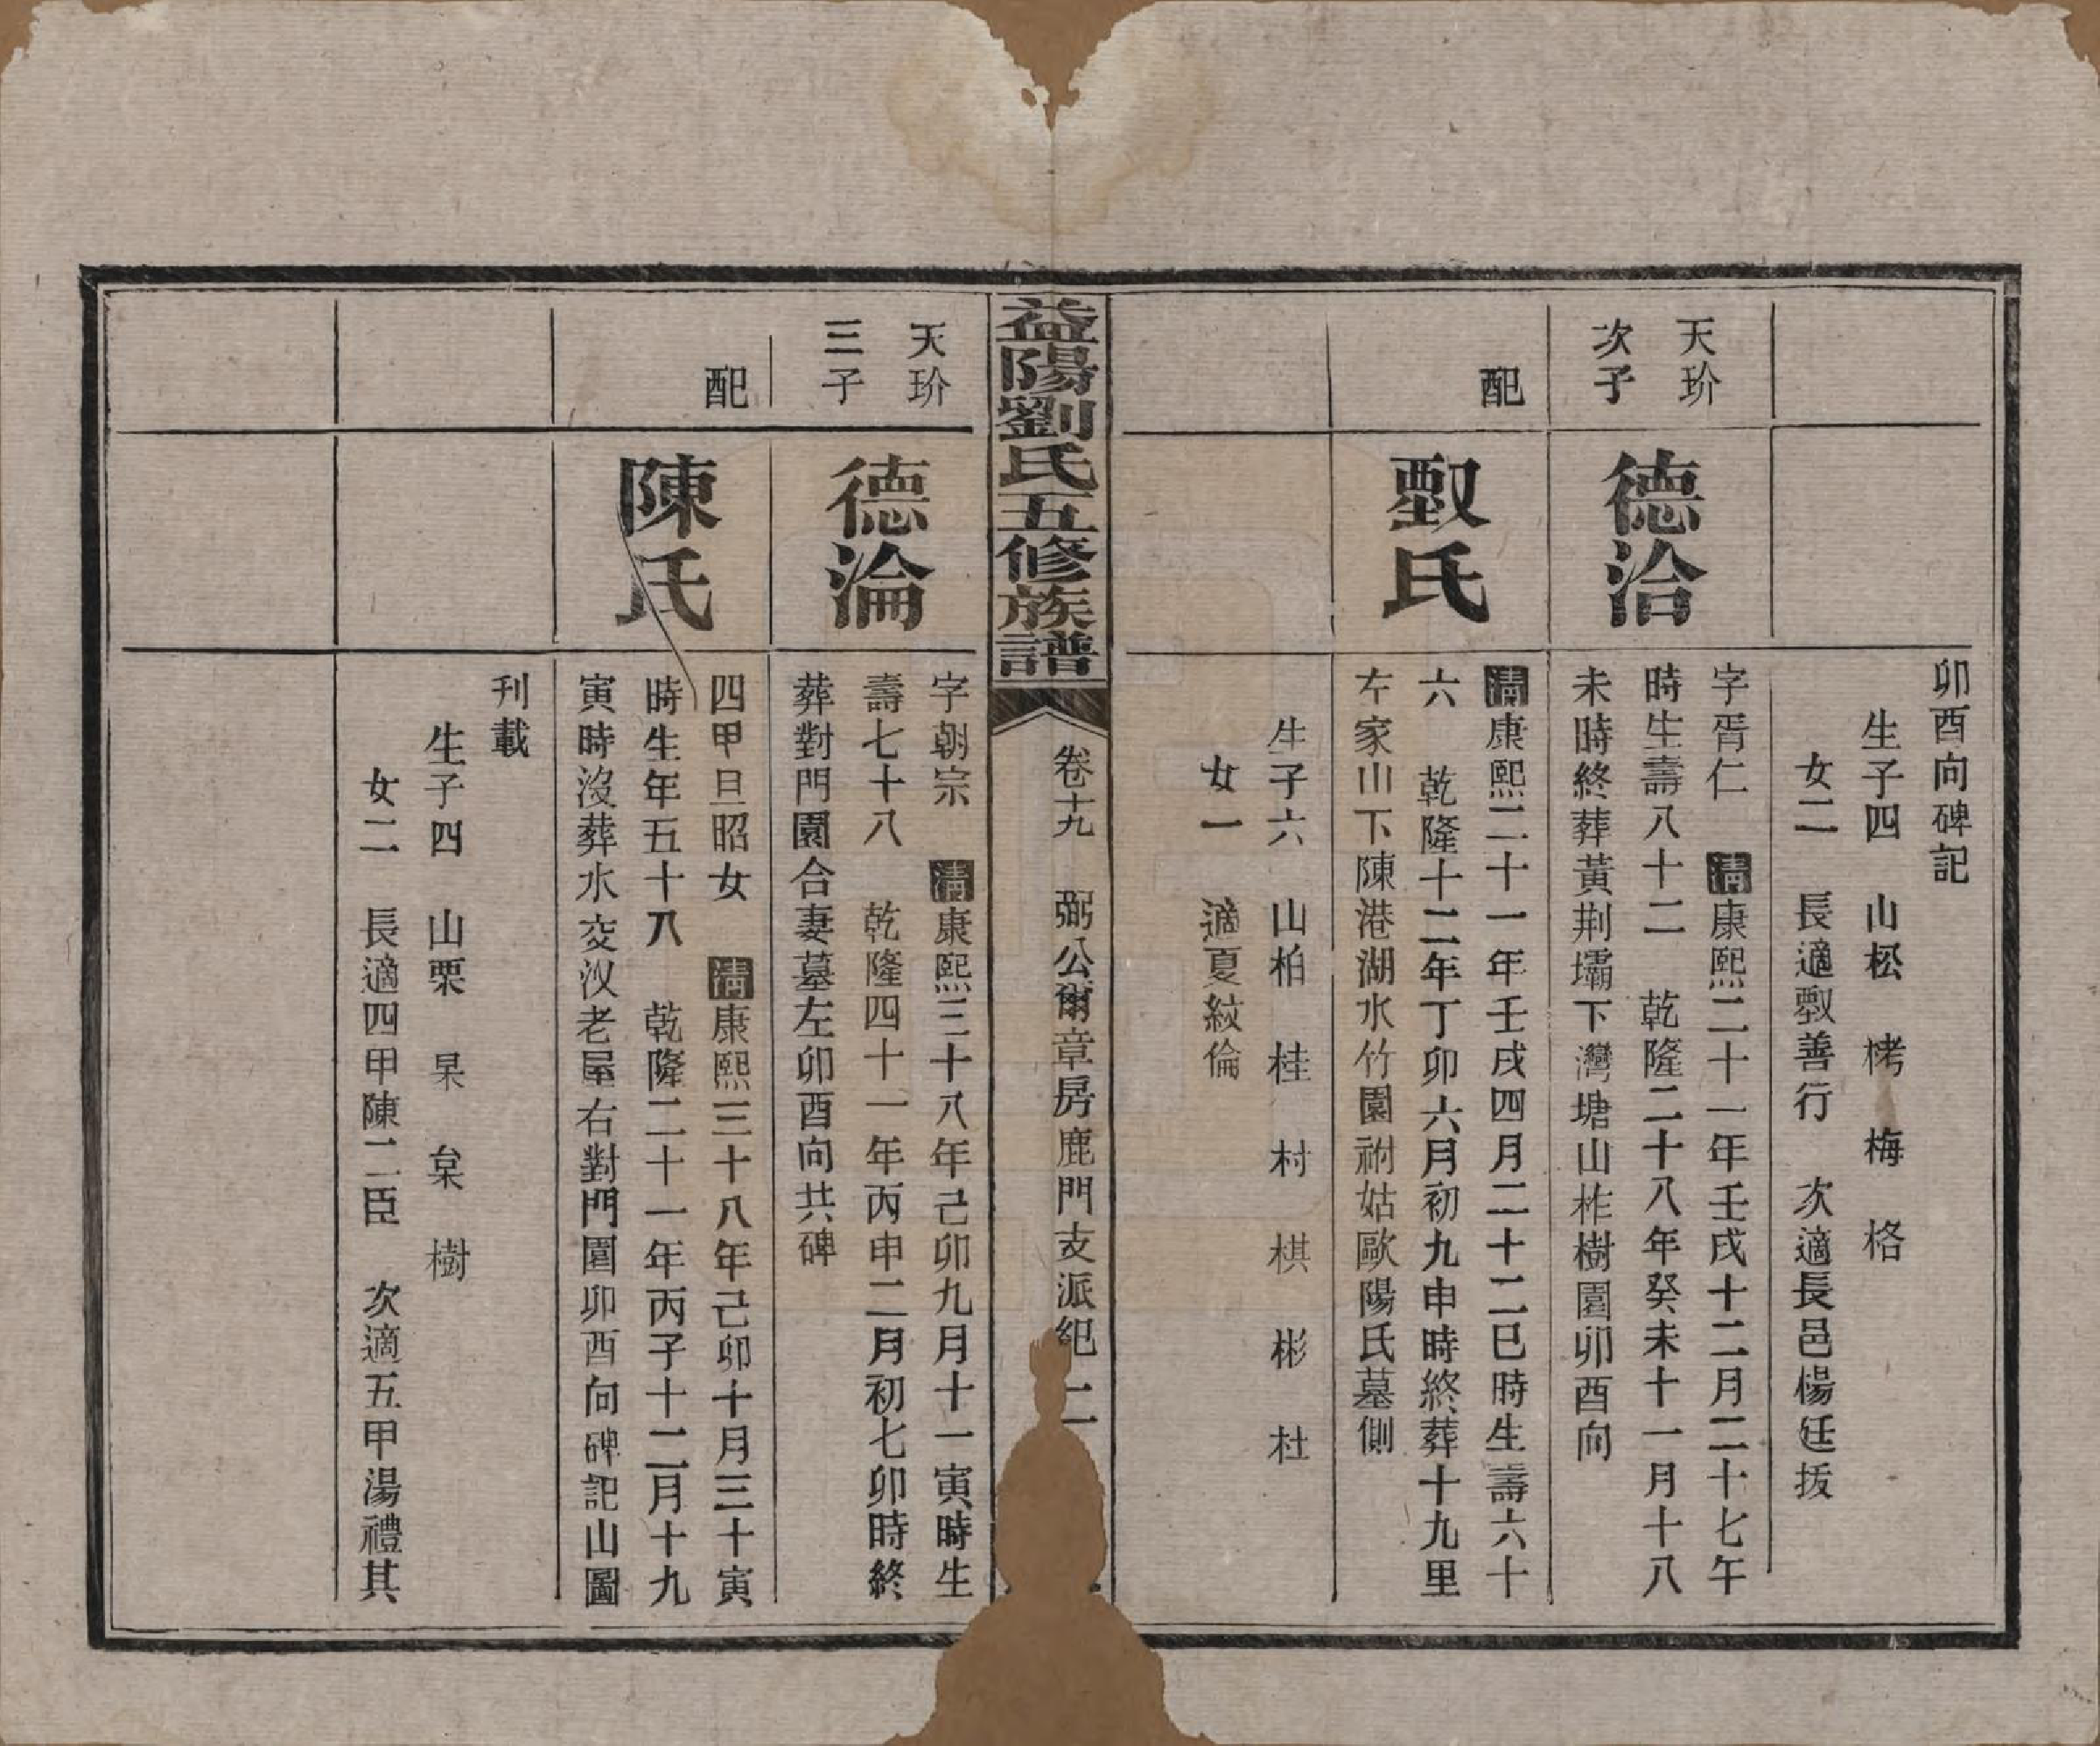 卯酉向碑記
生子四　山松　栲　梅　格
女二　長適㽮善行　次適長邑楊廷拔
天玠
次子
德洽
字胥仁　清康熙二十一年壬戌十二月二十七午
時生壽八十二　乾隆二十八年癸未十一月十八
未時終葬黃荆壩下灣塘山柞樹園卯酉向
配
㽮氏
清康熙二十一年壬戌四月二十二巳時生壽六十
六　乾隆十二年丁卯六月初九申時終葬十九里
左家山下陳港湖水竹園祔姑歐陽氏墓側
生子六　山柏　桂　村　棋　彬　杜
女一　適夏紋倫
益陽劉氏五修族譜
卷十九　弼公爾章房鹿門支派紀　二
天玠
三子
德淪
字朝宗　清康熙三十八年己卯九月十一寅時生
壽七十八　乾隆四十一年丙申二月初七卯時終
葬對門園合妻墓左卯酉向共碑
配
陳氏
四甲旦昭女　清康熙三十八年己卯十月三十寅
時生年五十八　乾隆二十一年丙子十二月十九
寅時沒葬水交汊老屋右對門園卯酉向碑記山圖
刊載
生子四　山栗　杲　枲　樹
女二　長適四甲陳二臣　次適五甲湯禮其